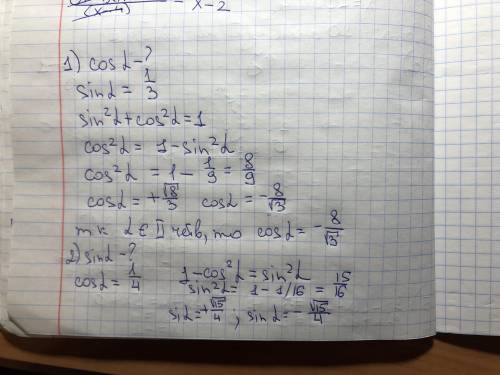 (x-4) - x-2
1) cosα-?
sinα = 1/3
sin²α+cos²α=1
cos²α = 1-sin²α
cos²α = 1 - 1/9 = 8/9
cosα = +√8/3 cosα = -8/√3
т к α ∈ II четв, то cosα = -8/√3
2) sinα-?
cosα = 1/4 1-cos²α = sin²α
sin²α = 1 - 1/16 = 15/16
siα = +√15/4 ; sinα = -√15/4